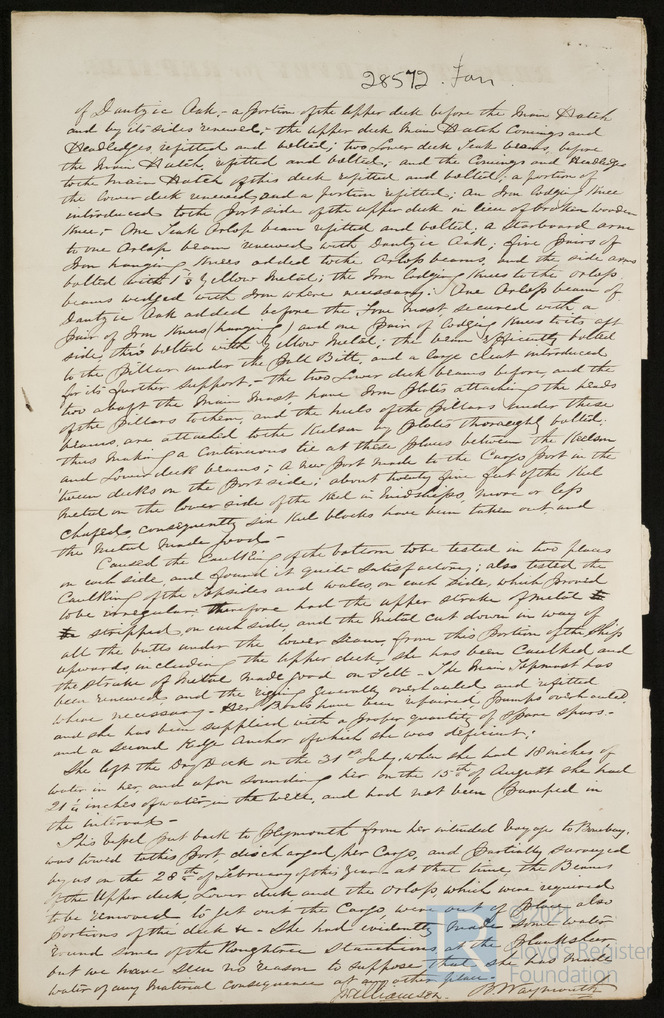 28572. Jan.
of Dantzic Oak; - a portion of the upper deck before the Main Hatch
and by its sides renewed; - the upper deck Main Hatch Comings and
Headledges refitted and bolted; two Lower deck Teak beams before
the Main Hatch refitted and bolted; and the Comings and Headledges
to the Main Hatch of this deck refitted and bolted; a portion of
the Lower deck renewed and a portion refitted; An Iron Lodging Knee
introduced to the Port side of the upper deck in lieu of broken wooden
Knee; - One Teak Orlop beam refitted and bolted; a Starboard arm
to one Orlop beam renewed with Dantzic Oak; five pairs of
Iron hanging Knees added to the Orlop beams, and the side arms
bolted with Yellow Metal; the Iron Lodging Knees to the orlop
beams wedged with Iron where necessary; One Orlop beam of
Dantzic Oak added before the Fore Mast secured with a
pair of Iron Knees (hanging) and one pair of Lodging Knees to its aft
side, thro' bolted with Yellow Metal; the beam efficiently bolted
to the Pillar under the Pall Bitt, and a large cleat introduced
for its further support; - the two Lower deck beams before, and the
two abaft the Main Mast have Iron Plates attaching the heads
of the Pillars to them, and the heels of the Pillars under these
beams, are attached to the Keelson by Plates thoroughly bolted;
thus making a continuous tie at these places between the Keelson
and Lower deck beams; A new Port made to the Cargo Port in the
tween decks on the Port side; about twenty five feet of the Keel
Metal on the lower side of the Keel in Midships, more or less
chafed, consequently six Keel blocks have been taken out and
the Metal made good -
Caused the Caulking of the bottom to be tested in two places
on each side, and found it quite satisfactory; also tested the
Caulking of the Topsides and wales, on each side, which proved
to be irregular; therefore had the upper strake of metal
stripped, on each side, and the Metal cut down in way of
all the butts under the lower seam, from this Portion of the Ship
upwards including the upper deck, she has been Caulked and
the strake of Metal made good on Felt - The Main Topmast has
been renewed and the rigging generally overhauled and refitted
where necessary - Her Boats have been repaired, pumps overhauled,
and she has been supplied with a proper quantity of Spare spars -
and a second Kedge Anchor of which she was deficient;
She left the Dry Dock on the 31st July, when she had 18 inches of
water in her, and upon sounding her on the 15th of August she had
inches of water, in the well, and had not been Pumped in
the interval -
This Vessel put back to Plymouth from her intended Voyage to Bombay,
was towed to this Port, discharged her Cargo, and partially surveyed
by us on the 28th of February of this Year - at that time, the Beams
of the upper deck, Lower deck and the orlops which were required
to be removed to get out the Cargo, were out of place, also
portions of the deck &c - She had evidently made some water
round some of the Roughtree Stanchions at the planksheer
but we have seen no reason to suppose that she has made
water of any material consequence at any other place.
J Williamson. B. Waymouth
© 2021
Lloyd's Register
Foundation